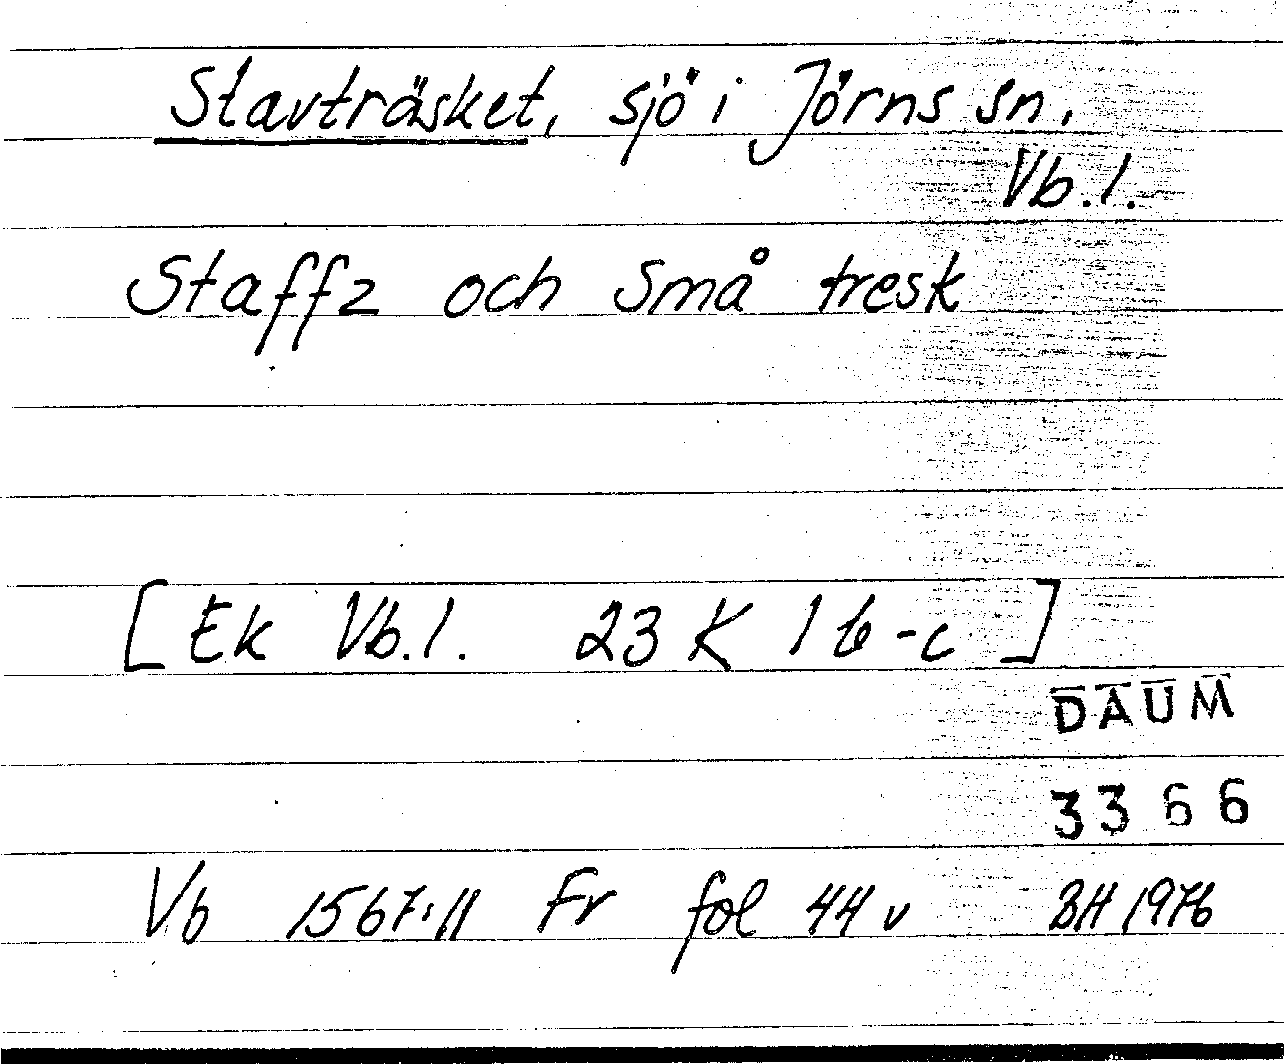 Stavträsket, sjö i Jörns sn.
Vb.l.
Staffz och Små tresk
[Ek Vb.l. 23 K 1 b-c]
DAUM
3366
Vb 1567:11 Fr fol 44 v BH 1976